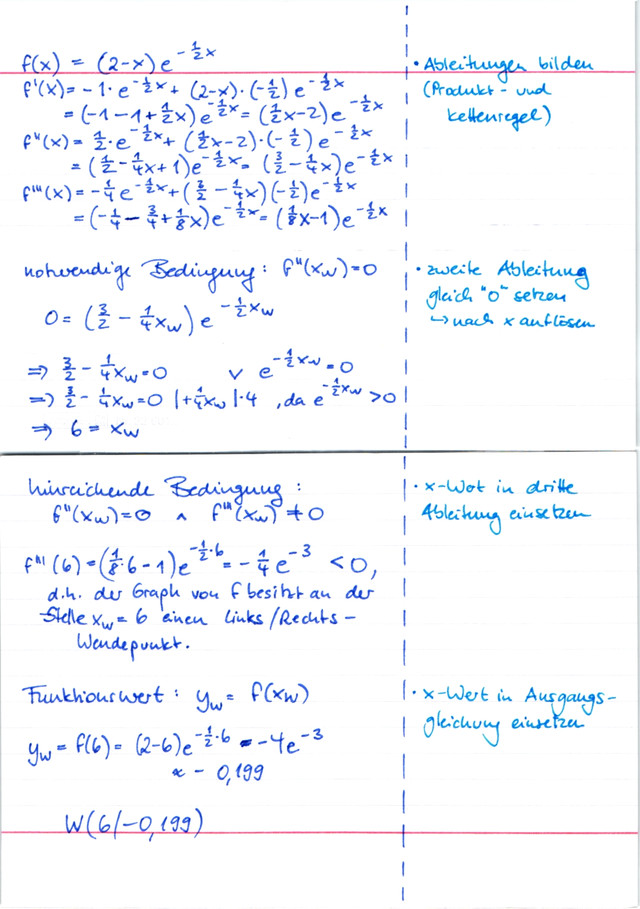 f(x) = (2-x) e^{-\frac{1}{2}x}
f'(x) = -1 · e^{-\frac{1}{2}x} + (2-x) · (-\frac{1}{2}) e^{-\frac{1}{2}x}
= (-1-1+\frac{1}{2}x) e^{-\frac{1}{2}x} = (\frac{1}{2}x-2) e^{-\frac{1}{2}x}
f''(x) = \frac{1}{2} · e^{-\frac{1}{2}x} + (\frac{1}{2}x-2) · (-\frac{1}{2}) e^{-\frac{1}{2}x}
= (\frac{1}{2} - \frac{1}{4}x + 1) e^{-\frac{1}{2}x} = (\frac{3}{2} - \frac{1}{4}x) e^{-\frac{1}{2}x}
f'''(x) = -\frac{1}{4} e^{-\frac{1}{2}x} + (\frac{3}{2} - \frac{1}{4}x) (-\frac{1}{2}) e^{-\frac{1}{2}x}
= (-\frac{1}{4} - \frac{3}{4} + \frac{1}{8}x) e^{-\frac{1}{2}x} = (\frac{1}{8}x-1) e^{-\frac{1}{2}x}
• Ableitungen bilden
(Produkt- und
Kettenregel)
notwendige Bedingung: f''(x_w) = 0
0 = (\frac{3}{2} - \frac{1}{4}x_w) e^{-\frac{1}{2}x_w}
⇒ \frac{3}{2} - \frac{1}{4}x_w = 0 ∨ e^{-\frac{1}{2}x_w} = 0
⇒ \frac{3}{2} - \frac{1}{4}x_w = 0 |+\frac{1}{4}x_w |·4 , da e^{-\frac{1}{2}x_w} > 0
⇒ 6 = x_w
• zweite Ableitung
gleich "0" setzen
↪ nach x auflösen
hinreichende Bedingung:
f''(x_w) = 0 ∧ f'''(x_w) ≠ 0
f'''(6) = (\frac{1}{8}·6 - 1) e^{-\frac{1}{2}·6} = -\frac{1}{4} e^{-3} < 0,
d.h. der Graph von f besitzt an der
Stelle x_w = 6 einen Links/Rechts-
Wendepunkt.
• x-Wert in dritte
Ableitung einsetzen
Funktionswert: y_w = f(x_w)
y_w = f(6) = (2-6) e^{-\frac{1}{2}·6} = -4e^{-3}
≈ - 0,199
W(6/-0,199)
• x-Wert in Ausgangs-
gleichung einsetzen